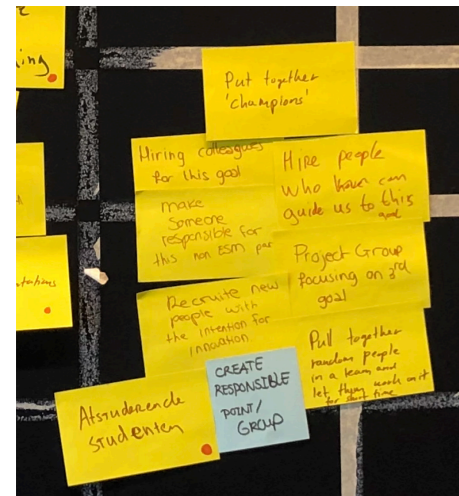 ing
tations
Put together
'champions'
Hiring colleagues
for this goal
Hire people
who can
guide us to this
goal
make
someone
responsible for
this non ESM
Project Group
focusing on 3rd
goal
Recruite new
people with
the intention for
innovation
Pull together
random people
in a team and
let them work on it
for short time
Afstuderende
studenten
CREATE
RESPONSIBLE
POINT/
GROUP